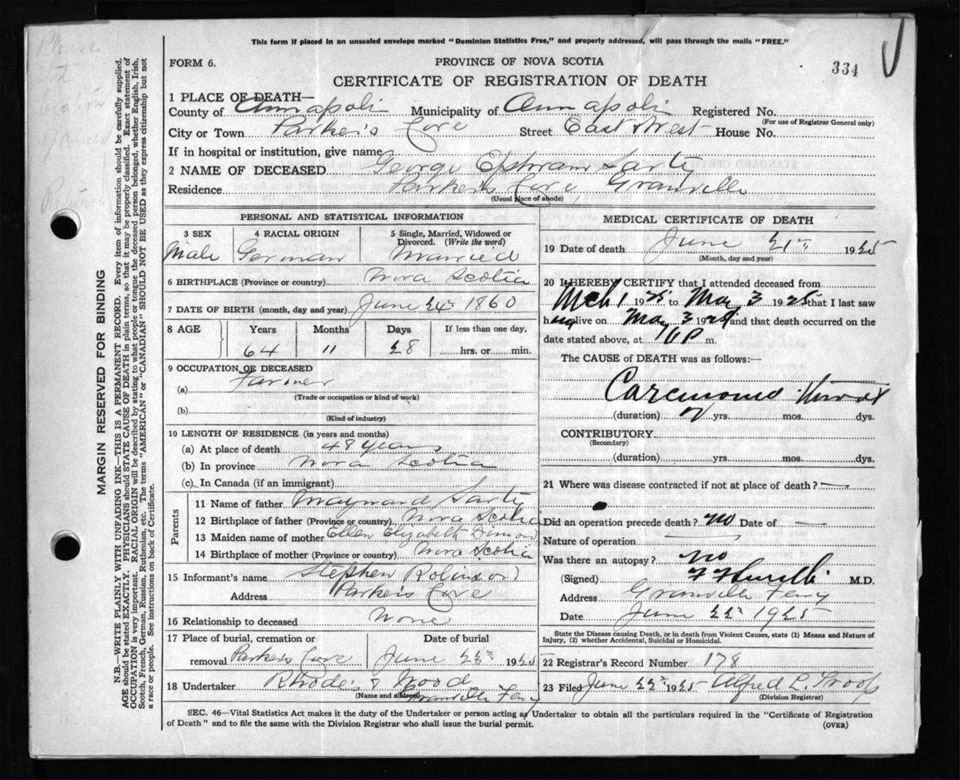 This form if placed in an unsealed envelope marked "Dominion Statistics Free," and properly addressed, will pass through the mails "FREE."
FORM 6.
PROVINCE OF NOVA SCOTIA
334
CERTIFICATE OF REGISTRATION OF DEATH
1 PLACE OF DEATH—
County of Annapolis Municipality of Annapolis Registered No.
(For use of Registrar General only)
City or Town Parker's Cove Street East Street House No.
If in hospital or institution, give name
2 NAME OF DECEASED George Ephraim Sarty
Residence Parkers Cove Granville
(Usual place of abode)
PERSONAL AND STATISTICAL INFORMATION
3 SEX Male
4 RACIAL ORIGIN German
5 Single, Married, Widowed or Divorced. (Write the word) Married
6 BIRTHPLACE (Province or country) Nova Scotia
7 DATE OF BIRTH (month, day and year) June 24th 1860
8 AGE Years Months Days If less than one day,
64 11 28 hrs. or min.
9 OCCUPATION OF DECEASED
(a) Farmer
(Trade or occupation or kind of work)
(b)
(Kind of industry)
10 LENGTH OF RESIDENCE (in years and months)
(a) At place of death 48 years
(b) In province Nova Scotia
(c) In Canada (if an immigrant)
Parents
11 Name of father Maynard Sarty
12 Birthplace of father (Province or country) Nova Scotia
13 Maiden name of mother Ellen Elizabeth
14 Birthplace of mother (Province or country) Nova Scotia
15 Informant's name Stephen Robinson
Address Parkers Cove
16 Relationship to deceased None
17 Place of burial, cremation or removal Parkers Cove
Date of burial June 23rd 1925
18 Undertaker Rhodes & Wood
(Name and address) Granville Ferry
MEDICAL CERTIFICATE OF DEATH
19 Date of death June 21st 1925
(Month, day and year)
20 I HEREBY CERTIFY that I attended deceased from
Mch 1 1925 to May 3 1925 that I last saw
h im alive on May 3 1925 and that death occurred on the
date stated above, at 10 P m.
The CAUSE of DEATH was as follows:
Carcinoma Throat
(duration) yrs. mos. dys.
CONTRIBUTORY
(Secondary)
(duration) yrs. mos. dys.
21 Where was disease contracted if not at place of death? —
Did an operation precede death? No Date of —
Nature of operation
Was there an autopsy? no
(Signed) M.D.
Address Granville Ferry
Date June 22nd 1925
State the Disease causing Death, or in death from Violent Causes, state (1) Means and Nature of
Injury, (2) whether Accidental, Suicidal or Homicidal.
22 Registrar's Record Number 178
23 Filed June 22nd 1925 Alfred L. Troop
(Division Registrar)
SEC. 46—Vital Statistics Act makes it the duty of the Undertaker or person acting as Undertaker to obtain all the particulars required in the "Certificate of Registration
of Death" and to file the same with the Division Registrar who shall issue the burial permit.
(OVER)
MARGIN RESERVED FOR BINDING
N.B.—WRITE PLAINLY WITH UNFADING INK—THIS IS A PERMANENT RECORD. Every item of information should be carefully supplied.
AGE should be stated EXACTLY. PHYSICIANS should STATE CAUSE OF DEATH in plain terms, so that it may be properly classified. Exact statement of
OCCUPATION is very important. RACIAL ORIGIN will be described by stating to what people or tongue the deceased person belonged, whether English, Irish,
Scotch, French, German, Russian, Ruthenian, etc. The terms "AMERICAN" or "CANADIAN" SHOULD NOT BE USED as they express citizenship but not
a race or people. See instructions on back of Certificate.